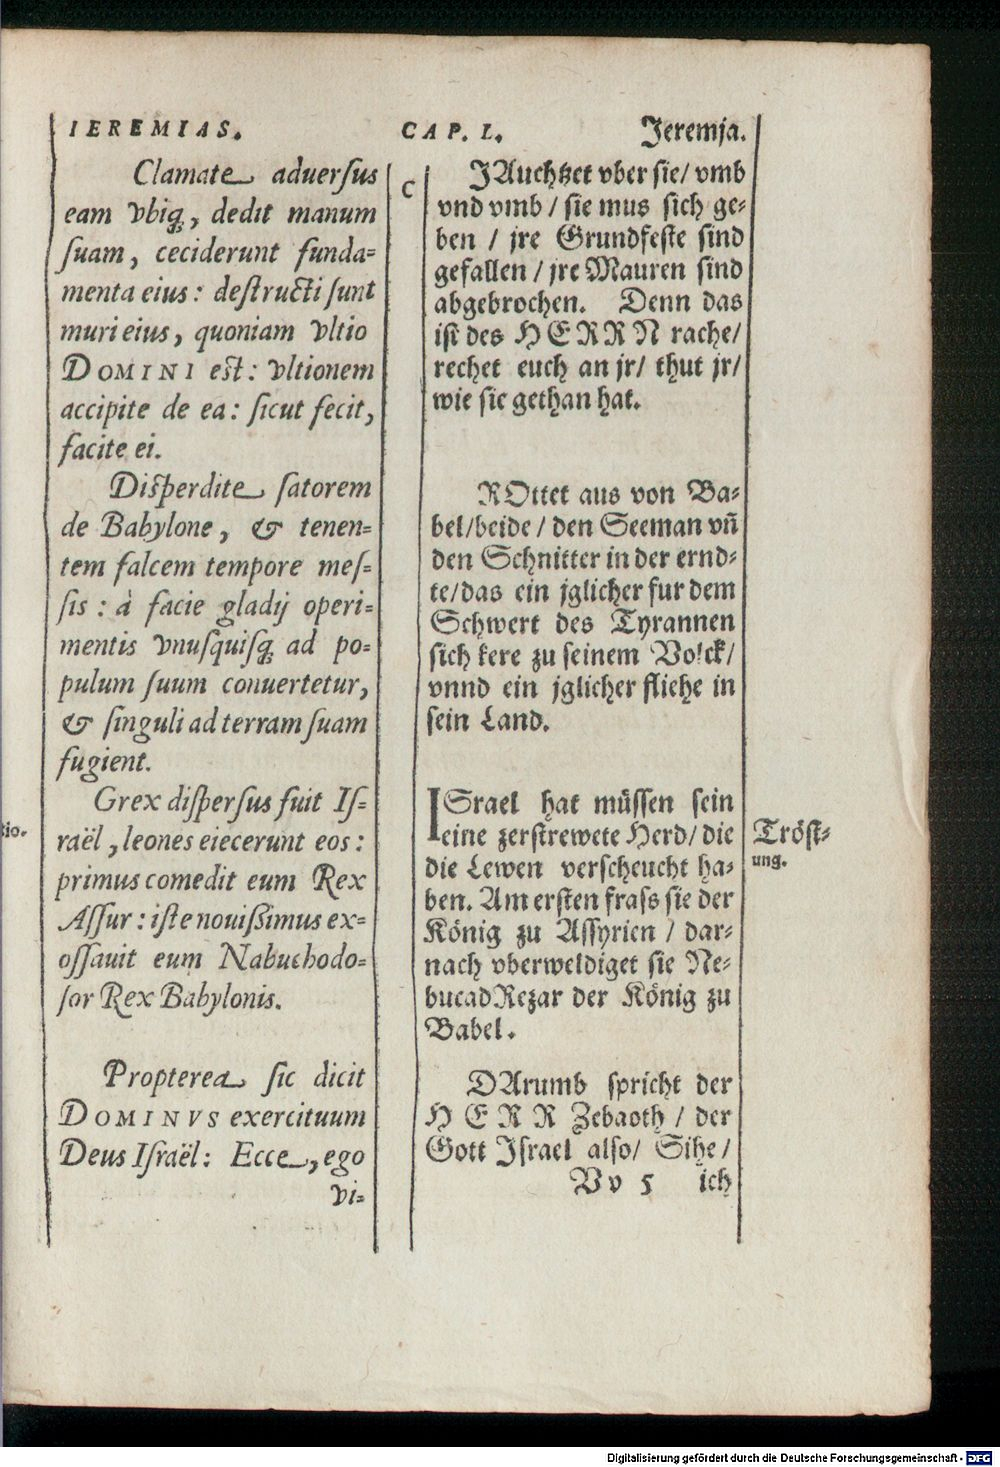 IEREMIAS.
CAP. L.
Jeremja.
Clamate aduersus
eam vbiq́;, dedit manum
suam, ceciderunt funda=
menta eius: destructi sunt
muri eius, quoniam vltio
DOMINI est: vltionem
accipite de ea: sicut fecit,
facite ei.
Disperdite satorem
de Babylone, & tenen=
tem falcem tempore mes=
sis: à facie gladij operi=
mentis vnusquisq; ad po=
pulum suum conuertetur,
& singuli ad terram suam
fugient.
Grex dispersus fuit Is=
raël, leones eiecerunt eos:
primus comedit eum Rex
Assur: iste nouissimus ex=
ossauit eum Nabuchodo=
sor Rex Babylonis.
Propterea sic dicit
DOMINVS exercituum
Deus Israël: Ecce, ego
vi=
C
JAuchtzet vber sie/ vmb
vnd vmb / sie mus sich ge=
ben / jre Grundfeste sind
gefallen / jre Mauren sind
abgebrochen. Denn das
ist des HERRN rache/
rechet euch an jr/ thut jr/
wie sie gethan hat.
ROttet aus von Ba=
bel/beide / den Seeman vñ
den Schnitter in der ernd=
te/das ein jglicher fur dem
Schwert des Tyrannen
sich kere zu seinem Volck/
vnnd ein jglicher fliehe in
sein Land.
ISrael hat müssen sein
eine zerstrewete Herd/ die
die Lewen verscheucht ha=
ben. Am ersten frass sie der
König zu Assyrien / dar=
nach vberweldiget sie Ne=
bucadRezar der König zu
Babel.
DArumb spricht der
HERR Zebaoth / der
Gott Israel also/ Sihe/
Vv 5 ich
Tröst=
ung.
tio.
Digitalisierung gefördert durch die Deutsche Forschungsgemeinschaft - DFG